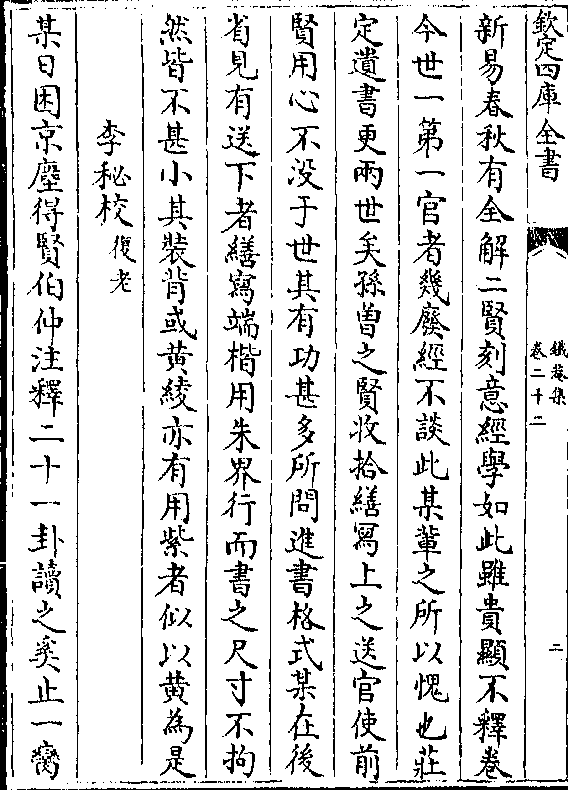 欽定四庫全書
鐵菴集
卷二十二
二
新易春秋有全解二賢刻意經學如此雖貴顯不釋卷
今世一第一官者幾廢經不談此某輩之所以愧也莊
定遺書更兩世矣孫曾之賢收拾繕寫上之送官使前
賢用心不没于世其有功甚多所問進書格式某在後
省見有送下者繕寫端楷用朱界行而書之尺寸不拘
然皆不甚小其裝背或黄綾亦有用紫者似以黄為是
李秘校復老
某日困京塵得賢伯仲注釋二十一卦讀之奚止一臠